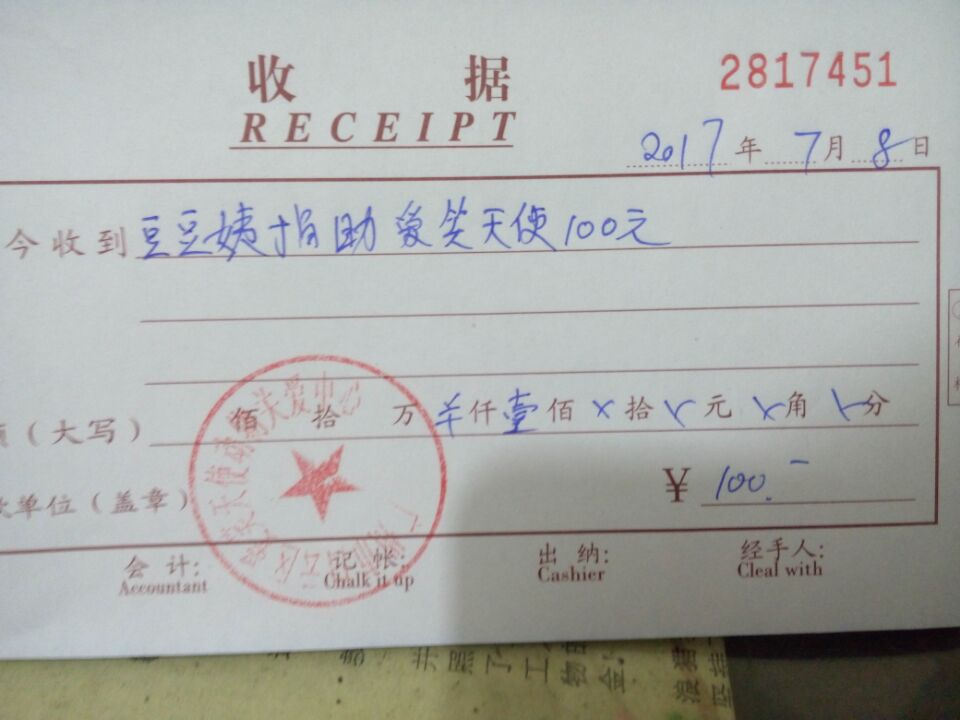 收 据
2817451
RECEIPT
2017年7月8日
今收到豆豆姨捐助爱笑天使100元
(大写) 佰 拾 万 羊仟壹佰 x 拾 x 元 x 角 x 分
¥ 100.-
款单位(盖章)
爱笑天使 关爱中心
会 计: 记 帐: 出 纳: 经手人:
Accountant Chalk it up Cashier Cleal with